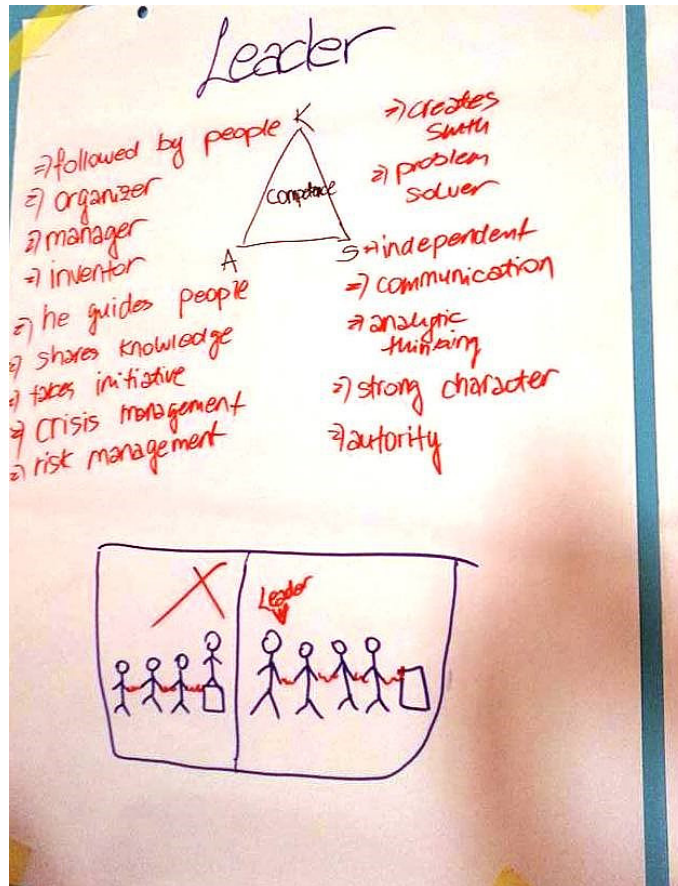 Leader
K
Competence
A
S
=> followed by people
=> organizer
=> manager
=> inventor
=> he guides people
=> shares knowledge
=> takes initiative
=> crisis management
=> risk management
=> creates
smth
=> problem
solver
=> independent
=> communication
=> analytic
thinking
=> strong character
=> autority
Leader